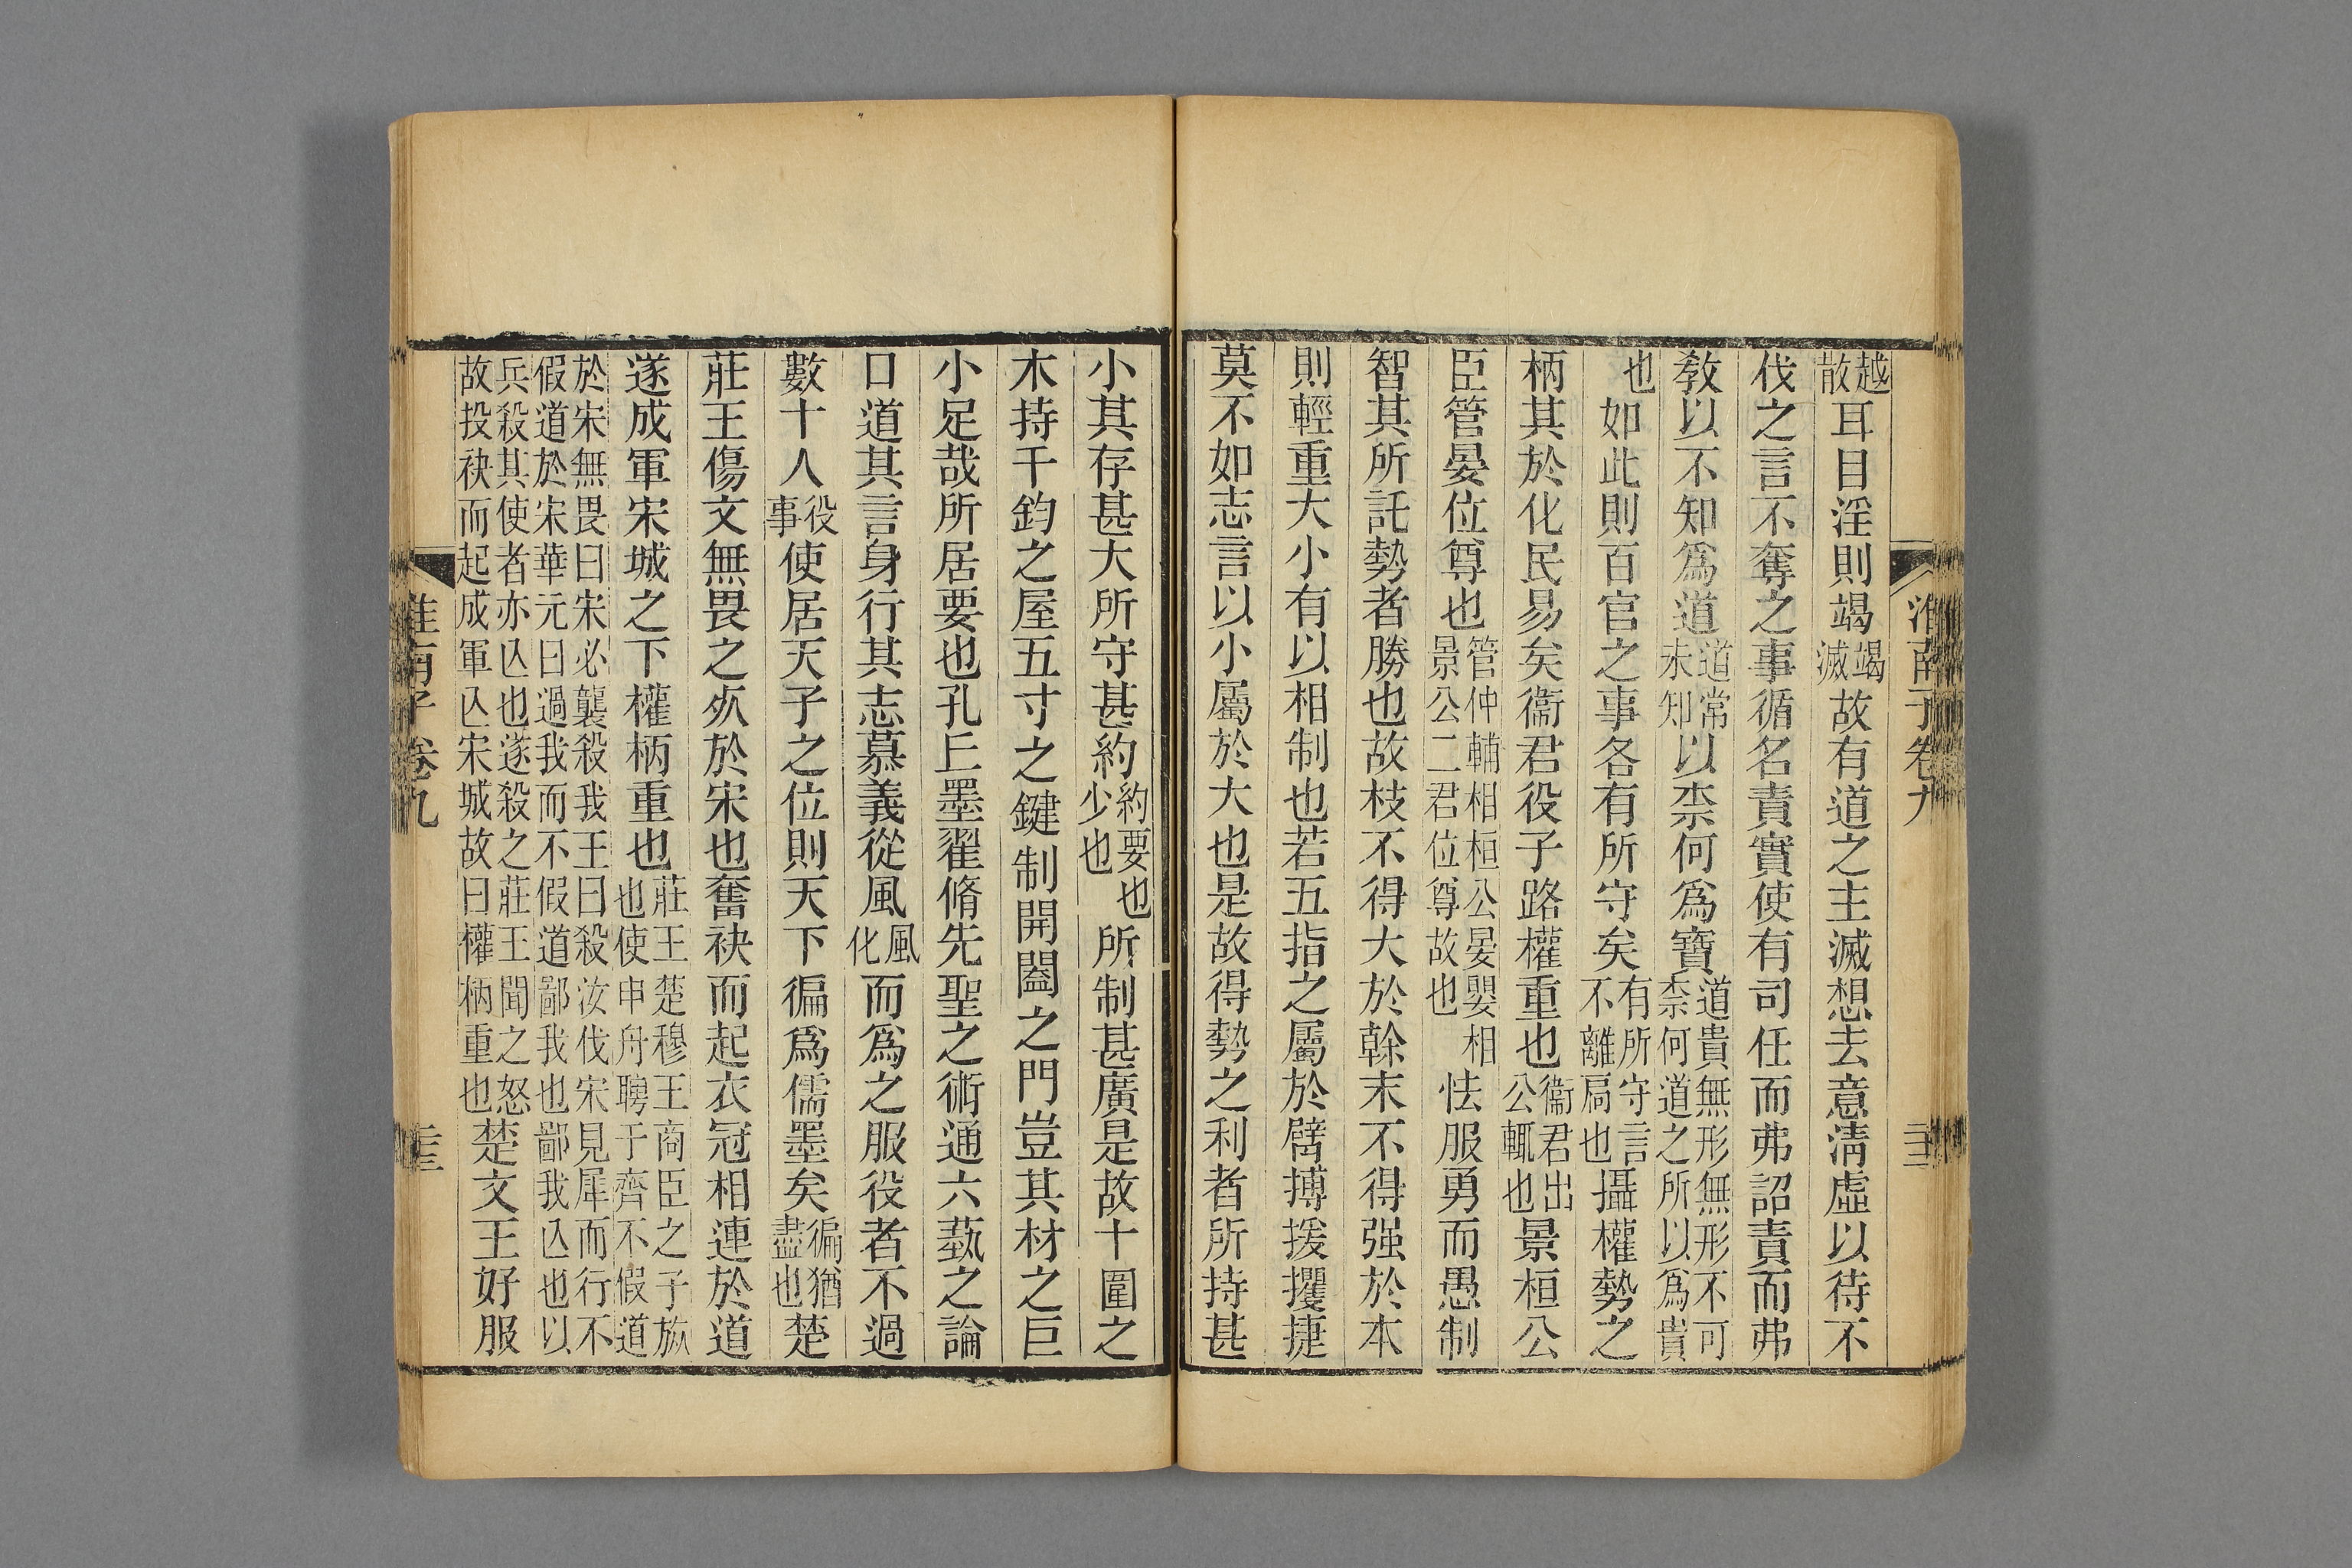 淮南子卷九
越散耳目淫則竭竭滅故有道之主滅想去意淸虛以待不
伐之言不奪之事循名責實使有司任而弗詔責而弗
敎以不知爲道道常未知以柰何爲寶道貴無形無形不可柰何道之所以爲貴
也如此則百官之事各有所守矣有所守言不離扃也攝權勢之
柄其於化民易矣衞君役子路權重也衞君出公輒也景桓公
臣管晏位尊也管仲輔相桓公晏嬰相景公二君位尊故也怯服勇而愚制
智其所託勢者勝也故枝不得大於榦末不得强於本
則輕重大小有以相制也若五指之屬於臂搏援攫捷
莫不如志言以小屬於大也是故得勢之利者所持甚
小其存甚大所守甚約約要也少也所制甚廣是故十圍之
木持千鈞之屋五寸之鍵制開闔之門豈其材之巨
小足哉所居要也孔丘墨翟脩先聖之術通六蓺之論
口道其言身行其志慕義從風風化而爲之服役者不過
數十人役事使居天子之位則天下徧爲儒墨矣徧猶盡也楚
莊王傷文無畏之㱙於宋也奮袂而起衣冠相連於道
遂成軍宋城之下權柄重也莊王楚穆王商臣之子旅也使申舟聘于齊不假道
於宋無畏曰宋必襲殺我王曰殺汝伐宋見犀而行不假道於宋華元曰過我而不假道鄙我也鄙我亾也以
兵殺其使者亦亾也遂殺之莊王聞之怒故投袂而起成軍亾宋城故曰權柄重也楚文王好服
淮南子 卷九